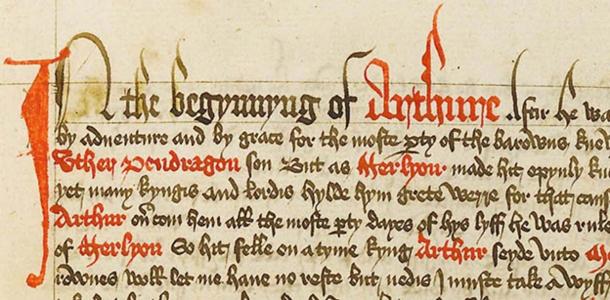 In the begynnyng of Arthure . Aftir he was
by adventure and by grace for the moste pty of the barowns knew
Uther Pendragon son But as Merlyon made hit opynly kn
yet many kyngis and lordis hylde hym grete werre for that caus
Arthur on com hem all the moste pty dayes of hys lyff he was rule
of Merlyon So hit felle on a tyme kyng Arthur seyde unto Me
rownes woll let me have no reste but nedis I muste take a wyff